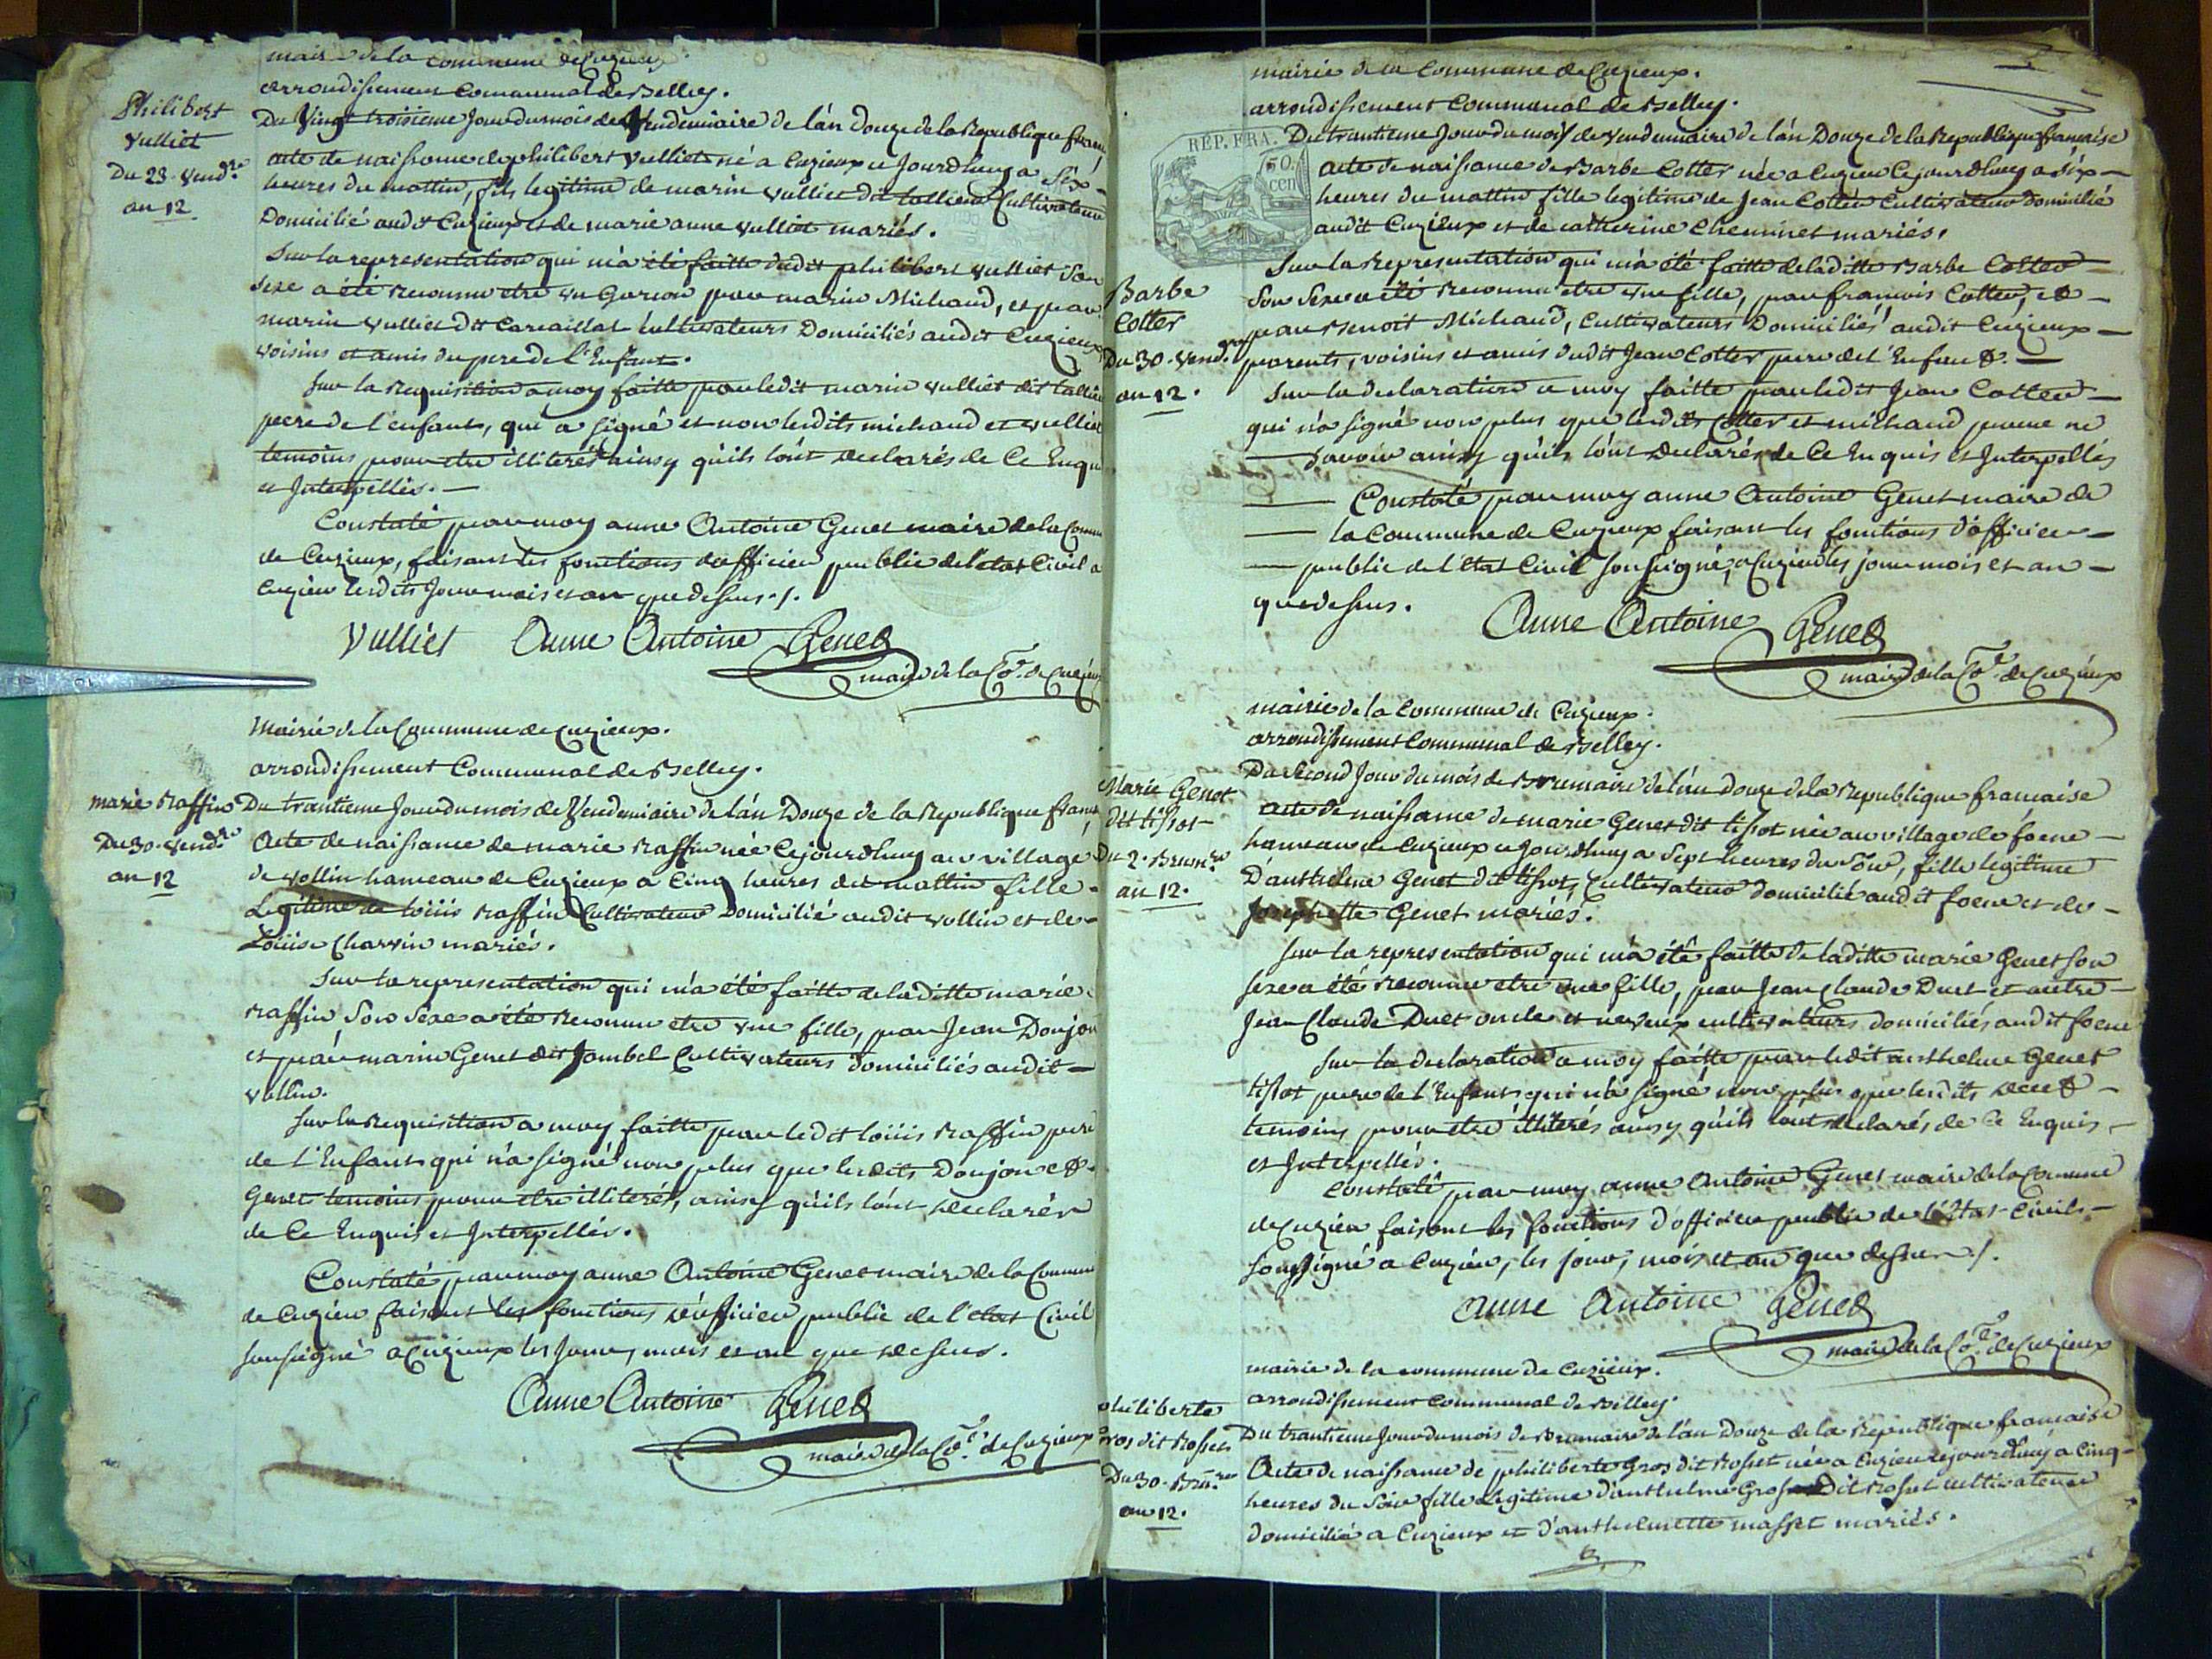 mairie de la Commune de Cuzieux.
arrondissement Communal de Belley.
Philibert
Vulliet
Du 23. Vend.re
an 12
Du Vingt troisieme Jour du mois de Vendemiaire de l'an Douze de la Republique
acte de naissance de philibert Vulliet né a Cuzieux ce Jourdhuy a Six
heures du mattin, fils legitime de marin Vulliet dit Cultivateur
Domicilié audit Cuzieux et de marie anne Vulliet mariés.
Sur la representation qui m'a été faitte dudit philibert Vulliet Son
Sexe a été reconnu etre un Garçon par marin Michaud, et par
marin Vulliet dit Carcaillat Cultivateurs Domiciliés audit Cuzieux
voisins et amis du pere de l'Enfant.
Sur la Requisition a moy faitte par ledit marin Vulliet dit
pere de l'enfant, qui a signé et non lesdits michaud et vulliet
temoins pour etre illiterés ainsy qu'ils l'ont declarés de Ce Enquis
et Interpellés. —
Constaté par moy anne Antoine Genet maire de la Commune
de Cuzieux, faisant les fonctions d'officier public de l'etat Civil a
Cuzieu lesdits Jour mois et an que dessus ./.
Vulliet Anne Antoine Genet
maire de la Co.e de Cuzieux
Mairie de la Commune de Cuzieux.
arrondissement Communal de Belley.
marie Raffin
Du 30. Vend.re
an 12
Du trantieme Jour du mois de Vendemiaire de l'an Douze de la Republique
Acte de naissance de marie Raffin née Cejourdhuy au village
de Vollin hameau de Cuzieux a Cinq heures du mattin fille
Legitime de Loüis Raffin Cultivateur Domicilié audit Vollin et de
Loüise Charvin mariés.
Sur la representation qui m'a été faitte de laditte marie
Raffin Son Sexe a été Reconnu etre une fille, par Jean Donjon
et par marin Genet dit Jambel Cultivateurs domiciliés audit —
Vollin.
Sur la Requisition a moy faitte par ledit loüis Raffin pere
de l'Enfant qui n'a signé non plus que lesdits Donjon et
Genet temoins pour etre illiterés, ainsy qu'ils l'ont declarés
de Ce Enquis et Interpellés.
Constaté par moy anne Antoine Genet maire de la Commune
de Cuzieu faisant les fonctions d'officier public de l'etat Civil
soussigné a Cuzieux les Jour, mois et an que dessus.
Anne Antoine Genet
maire de la Co.e de Cuzieux
mairie de la Commune de Cuzieux.
arrondissement Communal de Belley.
REP. FRA.
50.
cen
Barbe
Cotter
Du 30. Vend.re
an 12.
Du trantieme Jour du mois de Vendemiaire de l'an Douze de la Republique française
acte de naissance de Barbe Cotter née a Cuzieu Cejourdhuy a six —
heures du mattin fille legitime de Jean Cotter Cultivateur domicilié
audit Cuzieux et de catherine Cheminet mariés.
Sur la Representation qui m'a été faitte de laditte Barbe Cotter —
Son Sexe a été Reconnu etre une fille, par françois Cotter, et —
par Benoit Michaud, Cultivateurs Domiciliés audit Cuzieux —
parents, voisins et amis dudit Jean Cotter pere de l'Enfant. —
Sur la declaration a moy faitte par ledit Jean Cotter —
qui n'a signé non plus que lesdits Cotter et michaud pour ne
— savoir ainsy qu'ils l'ont declarés de Ce Enquis et Interpellés
— Constaté par moy anne Antoine Genet maire de
— la Commune de Cuzieux faisant les fonctions d'officier —
— public de l'Etat Civil soussigné, a Cuzieu les jour mois et an —
que dessus.
Anne Antoine Genet
maire de la Co.e de Cuzieux
mairie de la Commune de Cuzieux.
arrondissement Communal de Belley.
Marie Genet
dit tissot
Du 2. Brum.re
an 12.
Du second Jour du mois de Brumaire de l'an Douze de la Republique française
acte de naissance de marie Genet dit tissot née au village de —
hameau de Cuzieux ce Jourdhuy a Sept heures du Soir, fille legitime
D'anthelme Genet dit tissot, Cultivateur domicilié audit et de —
Josephette Genet mariés.
Sur la representation qui m'a été faitte de laditte marie Genet son
sexe a été reconnu etre une fille, par Jean Claude Duet et autre —
Jean Claude Duet oncle et neveux cultivateurs domiciliés audit
Sur la declaration a moy faitte par ledit anthelme Genet
tissot pere de l'Enfant qui n'a signé non plus que lesdits Duet —
temoins pour etre illiterés ainsy qu'ils l'ont declarés de Ce Enquis —
et Interpellés.
Constaté par moy anne Antoine Genet maire de la Commune
de Cuzieu faisant les fonctions d'officier public de l'Etat Civil —
soussigné a Cuzieu, les jour, mois et an que dessus ./.
Anne Antoine Genet
maire de la Co.e de Cuzieux
mairie de la commune de Cuzieux.
arrondissement Communal de Belley.
philiberte
Gros dit Rosset
Du 30. Bru.re
an 12.
Du trantieme Jour du mois de Brumaire de l'an Douze de la Republique française
Acte de naissance de philiberte Gros dit Rosset née a Cuzieu cejourdhuy a Cinq —
heures du Soir fille Legitime d'anthelme Gros dit Rosset cultivateur
domicilié a Cuzieux et d'anthelmette masset mariés.